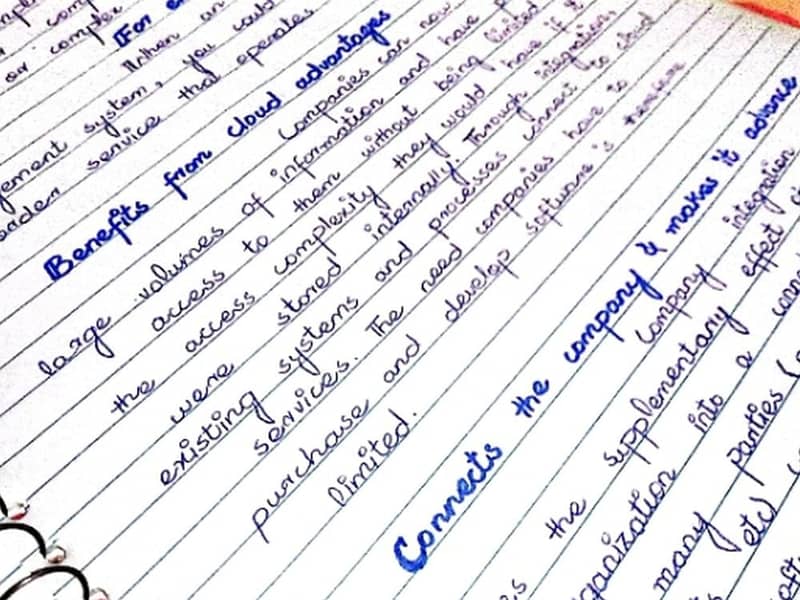 or complex (For e
When an
gement system, you could
service that operates
Benefits from cloud advantages
Companies can now
large volumes of information and have
access to them without being limited
the access complexity they would have if it
were stored internally. Through integration,
existing systems and processes connect to cloud
services. The need companies have to
purchase and develop software is therefore
limited.
Connects the company & makes it advance
company integration
es the supplementary effect
ganization into a
many parties
etc)